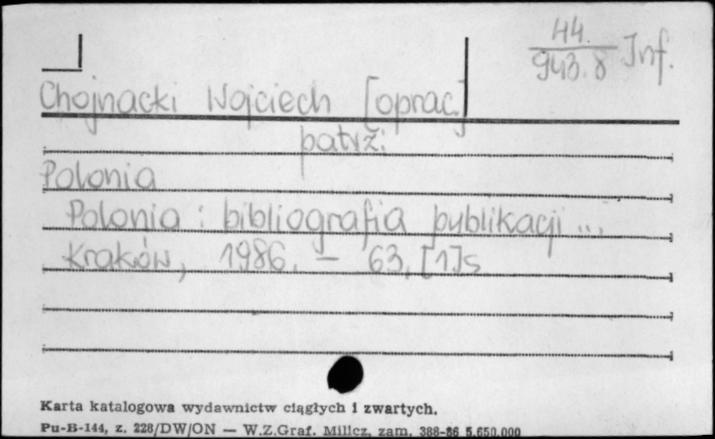 44.
943.8 Inf.
Chojnacki Wojciech [oprac.]
patrz:
Polonia
Polonia : bibliografia publikacji ...
Kraków, 1986. - 63, [1]s
Karta katalogowa wydawnictw ciągłych i zwartych.
Pu-B-144, z. 228/DW/ON — W.Z.Graf. Milicz, zam. 388-86 5.650.000